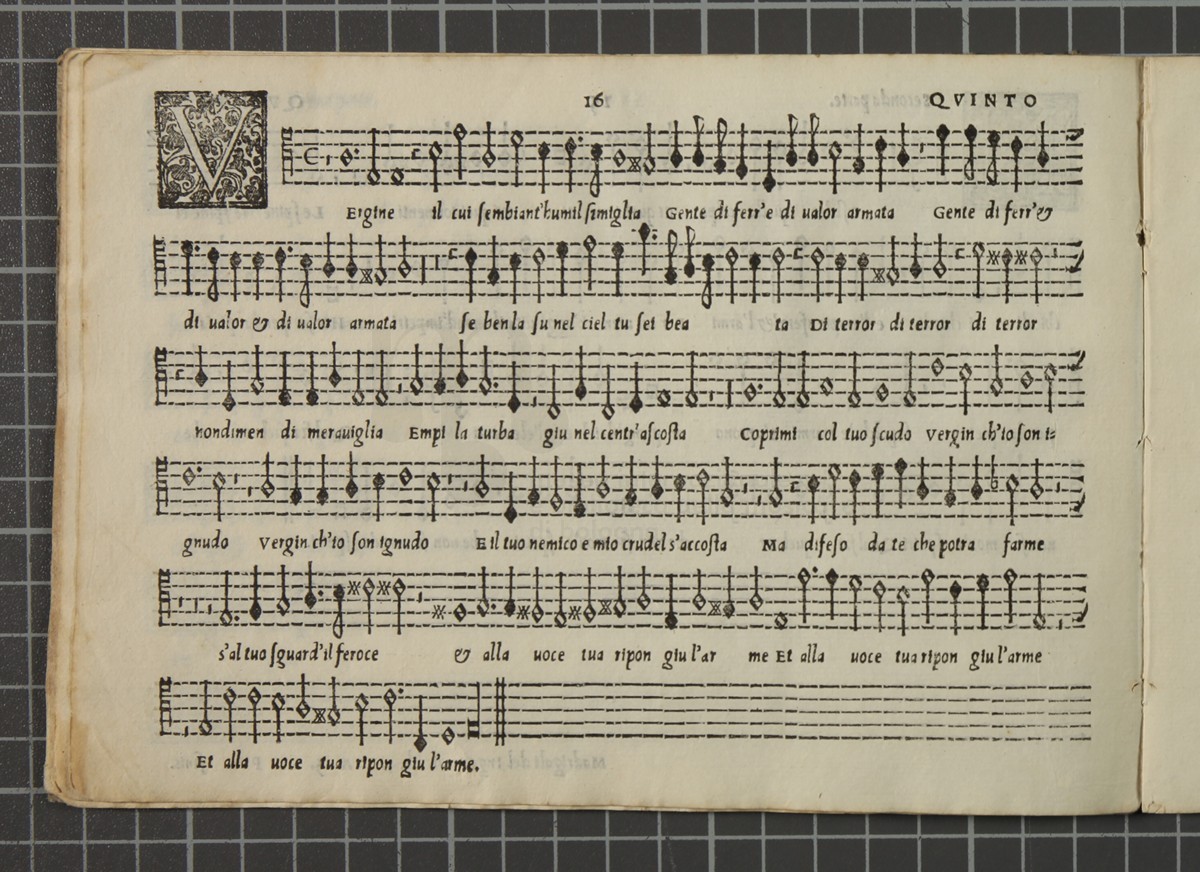 16 QVINTO
V Ergine il cui sembiant'humil simiglia Gente di ferr'e di ualor armata Gente di ferr'&
di ualor & di ualor armata se ben la su nel ciel tu sei bea ta Di terror di terror di terror
nondimen di merauiglia Empi la turba giu nel centr'ascosta Coprimi col tuo scudo Vergin ch'io son i=
gnudo Vergin ch'io son ignudo E il tuo nemico e mio crudel s'accosta Ma difeso da te che potra farme
s'al tuo sguard'il feroce & alla uoce tua ripon giu l'ar me Et alla uoce tua ripon giu l'arme
Et alla uoce tua ripon giu l'arme.